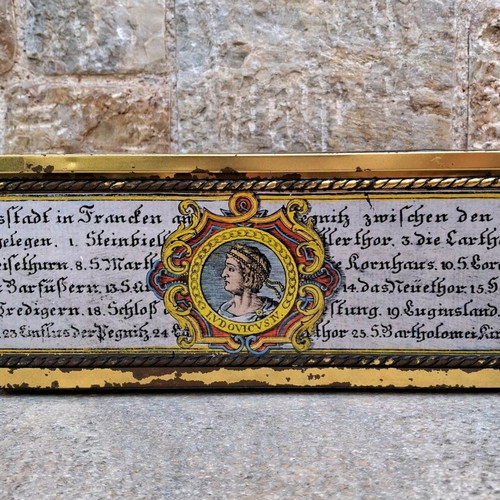 sstadt in Francken an gnitz zwischen den
gelegen. 1. Steinbiel lerthor. 3. die Carth
eisethurn. 8. S. Marth e Kornhaus. 10. S. Lor
Barfüssern. 13. S. 14. das Neüethor. 15. S
Predigern. 18. Schloß stung. 19. Luginsland.
23. Einflus der Pegnitz. 24. thor. 25. S. Bartholomei Kir
LVDOVICVS. IV